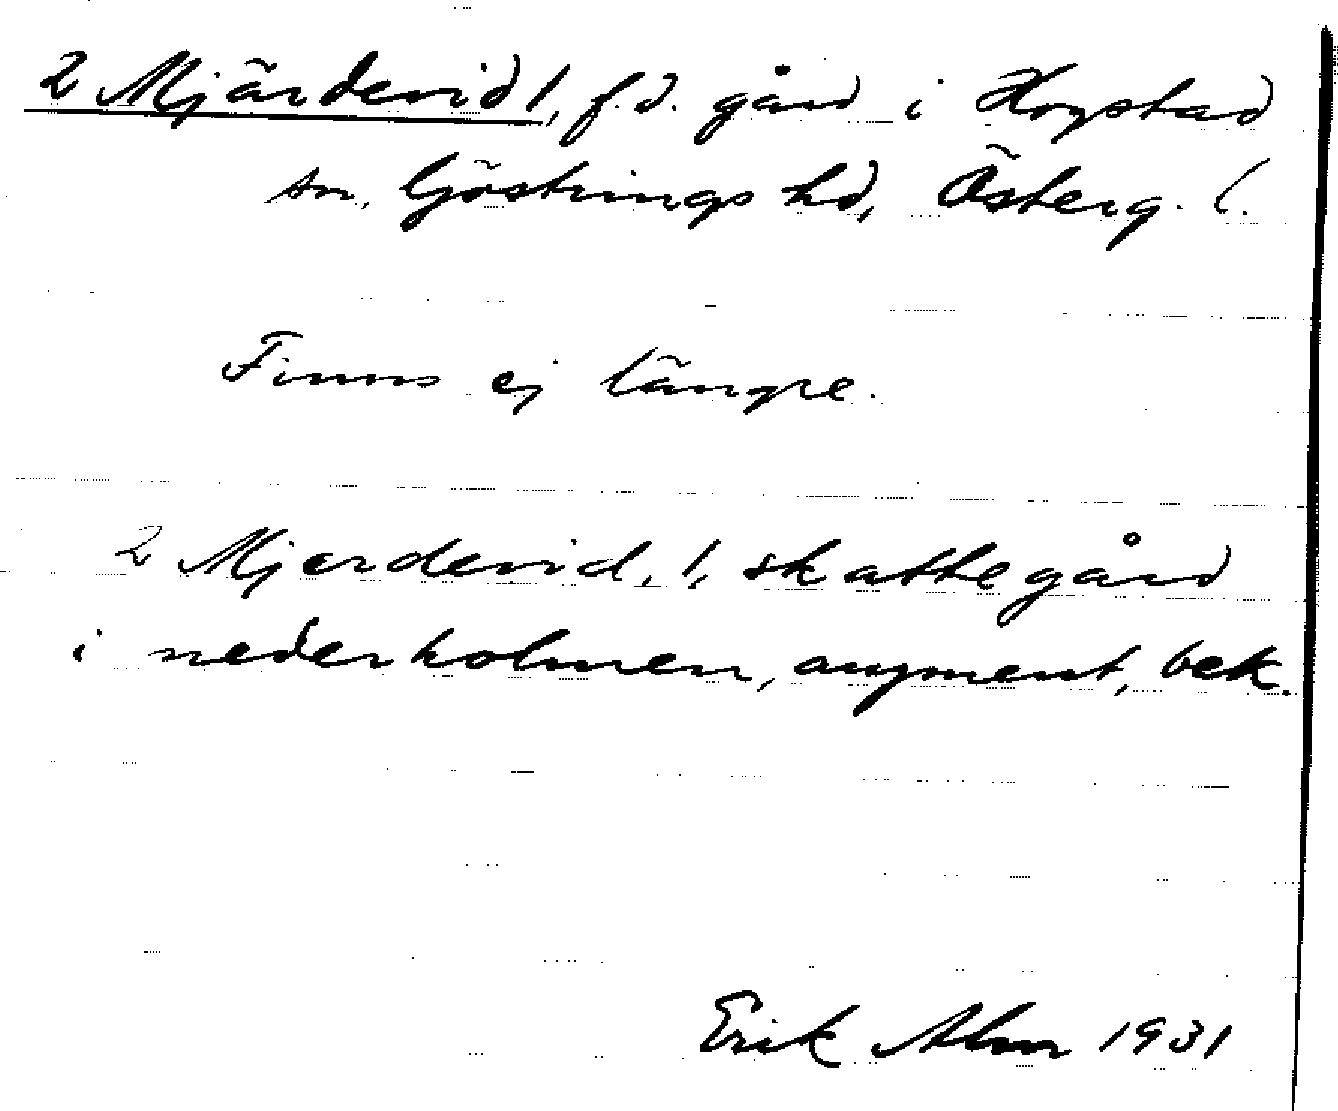 2 Mjärdevid 1, f.d. gård i Hogstad
sn, Göstrings hd, Österg. l.
Finns ej längre.
2 Mjerdevid, 1, skattegård
i nederholmen, augment, bek.
Erik Alm 1931